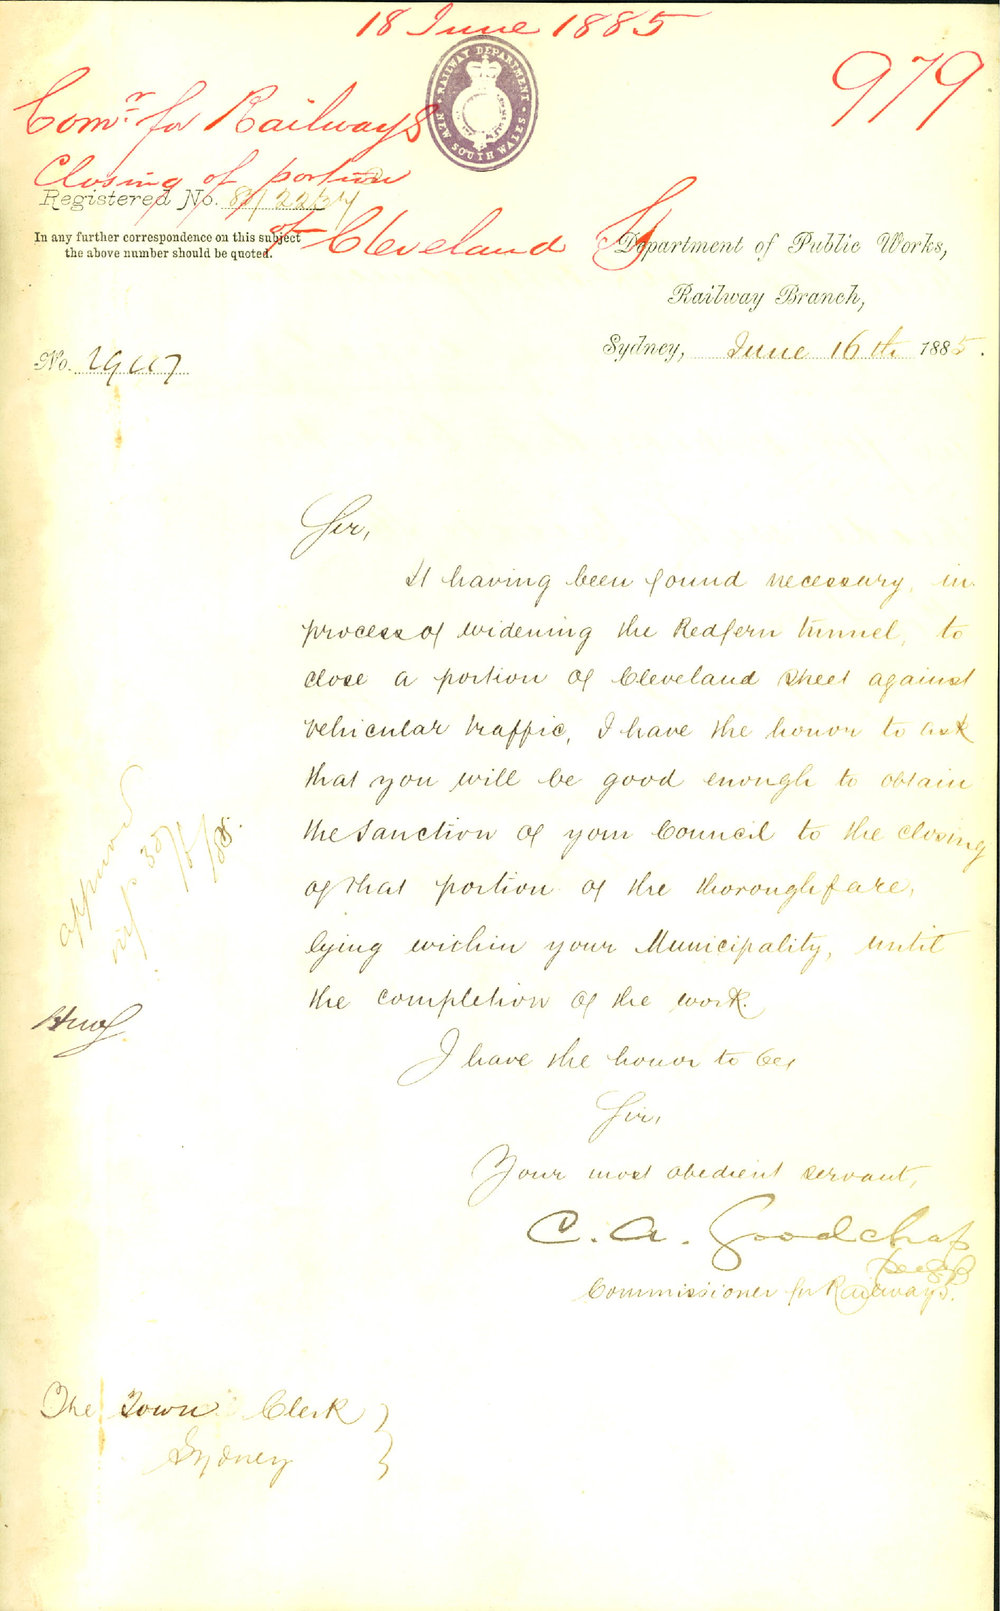 18 June 1885
979
RAILWAY DEPARTMENT
NEW SOUTH WALES
Comr for Railways
Closing of portion
of Cleveland St
Registered No.
In any further correspondence on this subject
the above number should be quoted.
Department of Public Works,
Railway Branch,
Sydney, June 16th 1885.
No.
Sir,
It having been found necessary, in
process of widening the Redfern tunnel, to
close a portion of Cleveland Street against
vehicular traffic, I have the honor to ask
that you will be good enough to obtain
the sanction of your Council to the closing
of that portion of the thoroughfare,
lying within your Municipality, until
the completion of the work.
approved
I have the honor to be,
Sir,
Your most obedient servant,
C. A. Goodchap
Commissioner for Railways.
The Town Clerk
Sydney